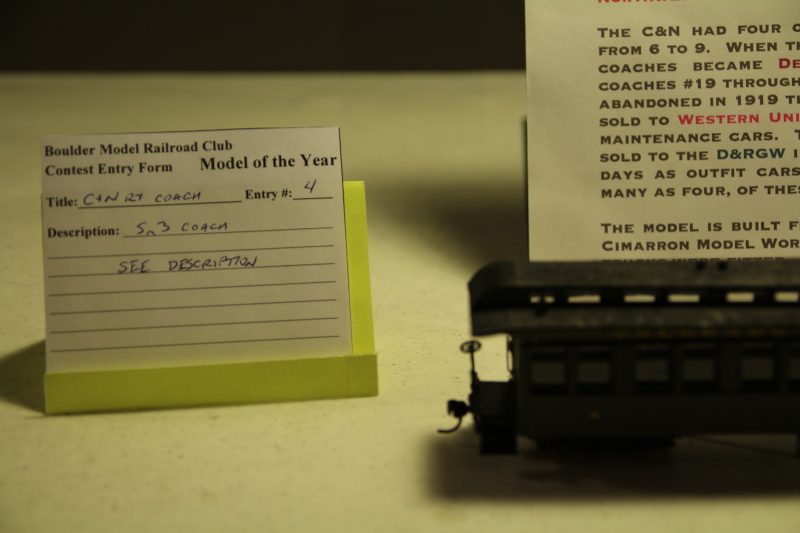 Boulder Model Railroad Club
Contest Entry Form Model of the Year
Title: C&N RY COACH Entry #: 4
Description: Sn3 COACH
SEE DESCRIPTION
THE C&N HAD FOUR
FROM 6 TO 9. WHEN
COACHES BECAME
COACHES #19 THROUGH
ABANDONED IN 1919
SOLD TO WESTERN
MAINTENANCE CARS.
SOLD TO THE D&RGW
DAYS AS OUTFIT CARS
MANY AS FOUR, OF
THE MODEL IS BUILT
CIMARRON MODEL